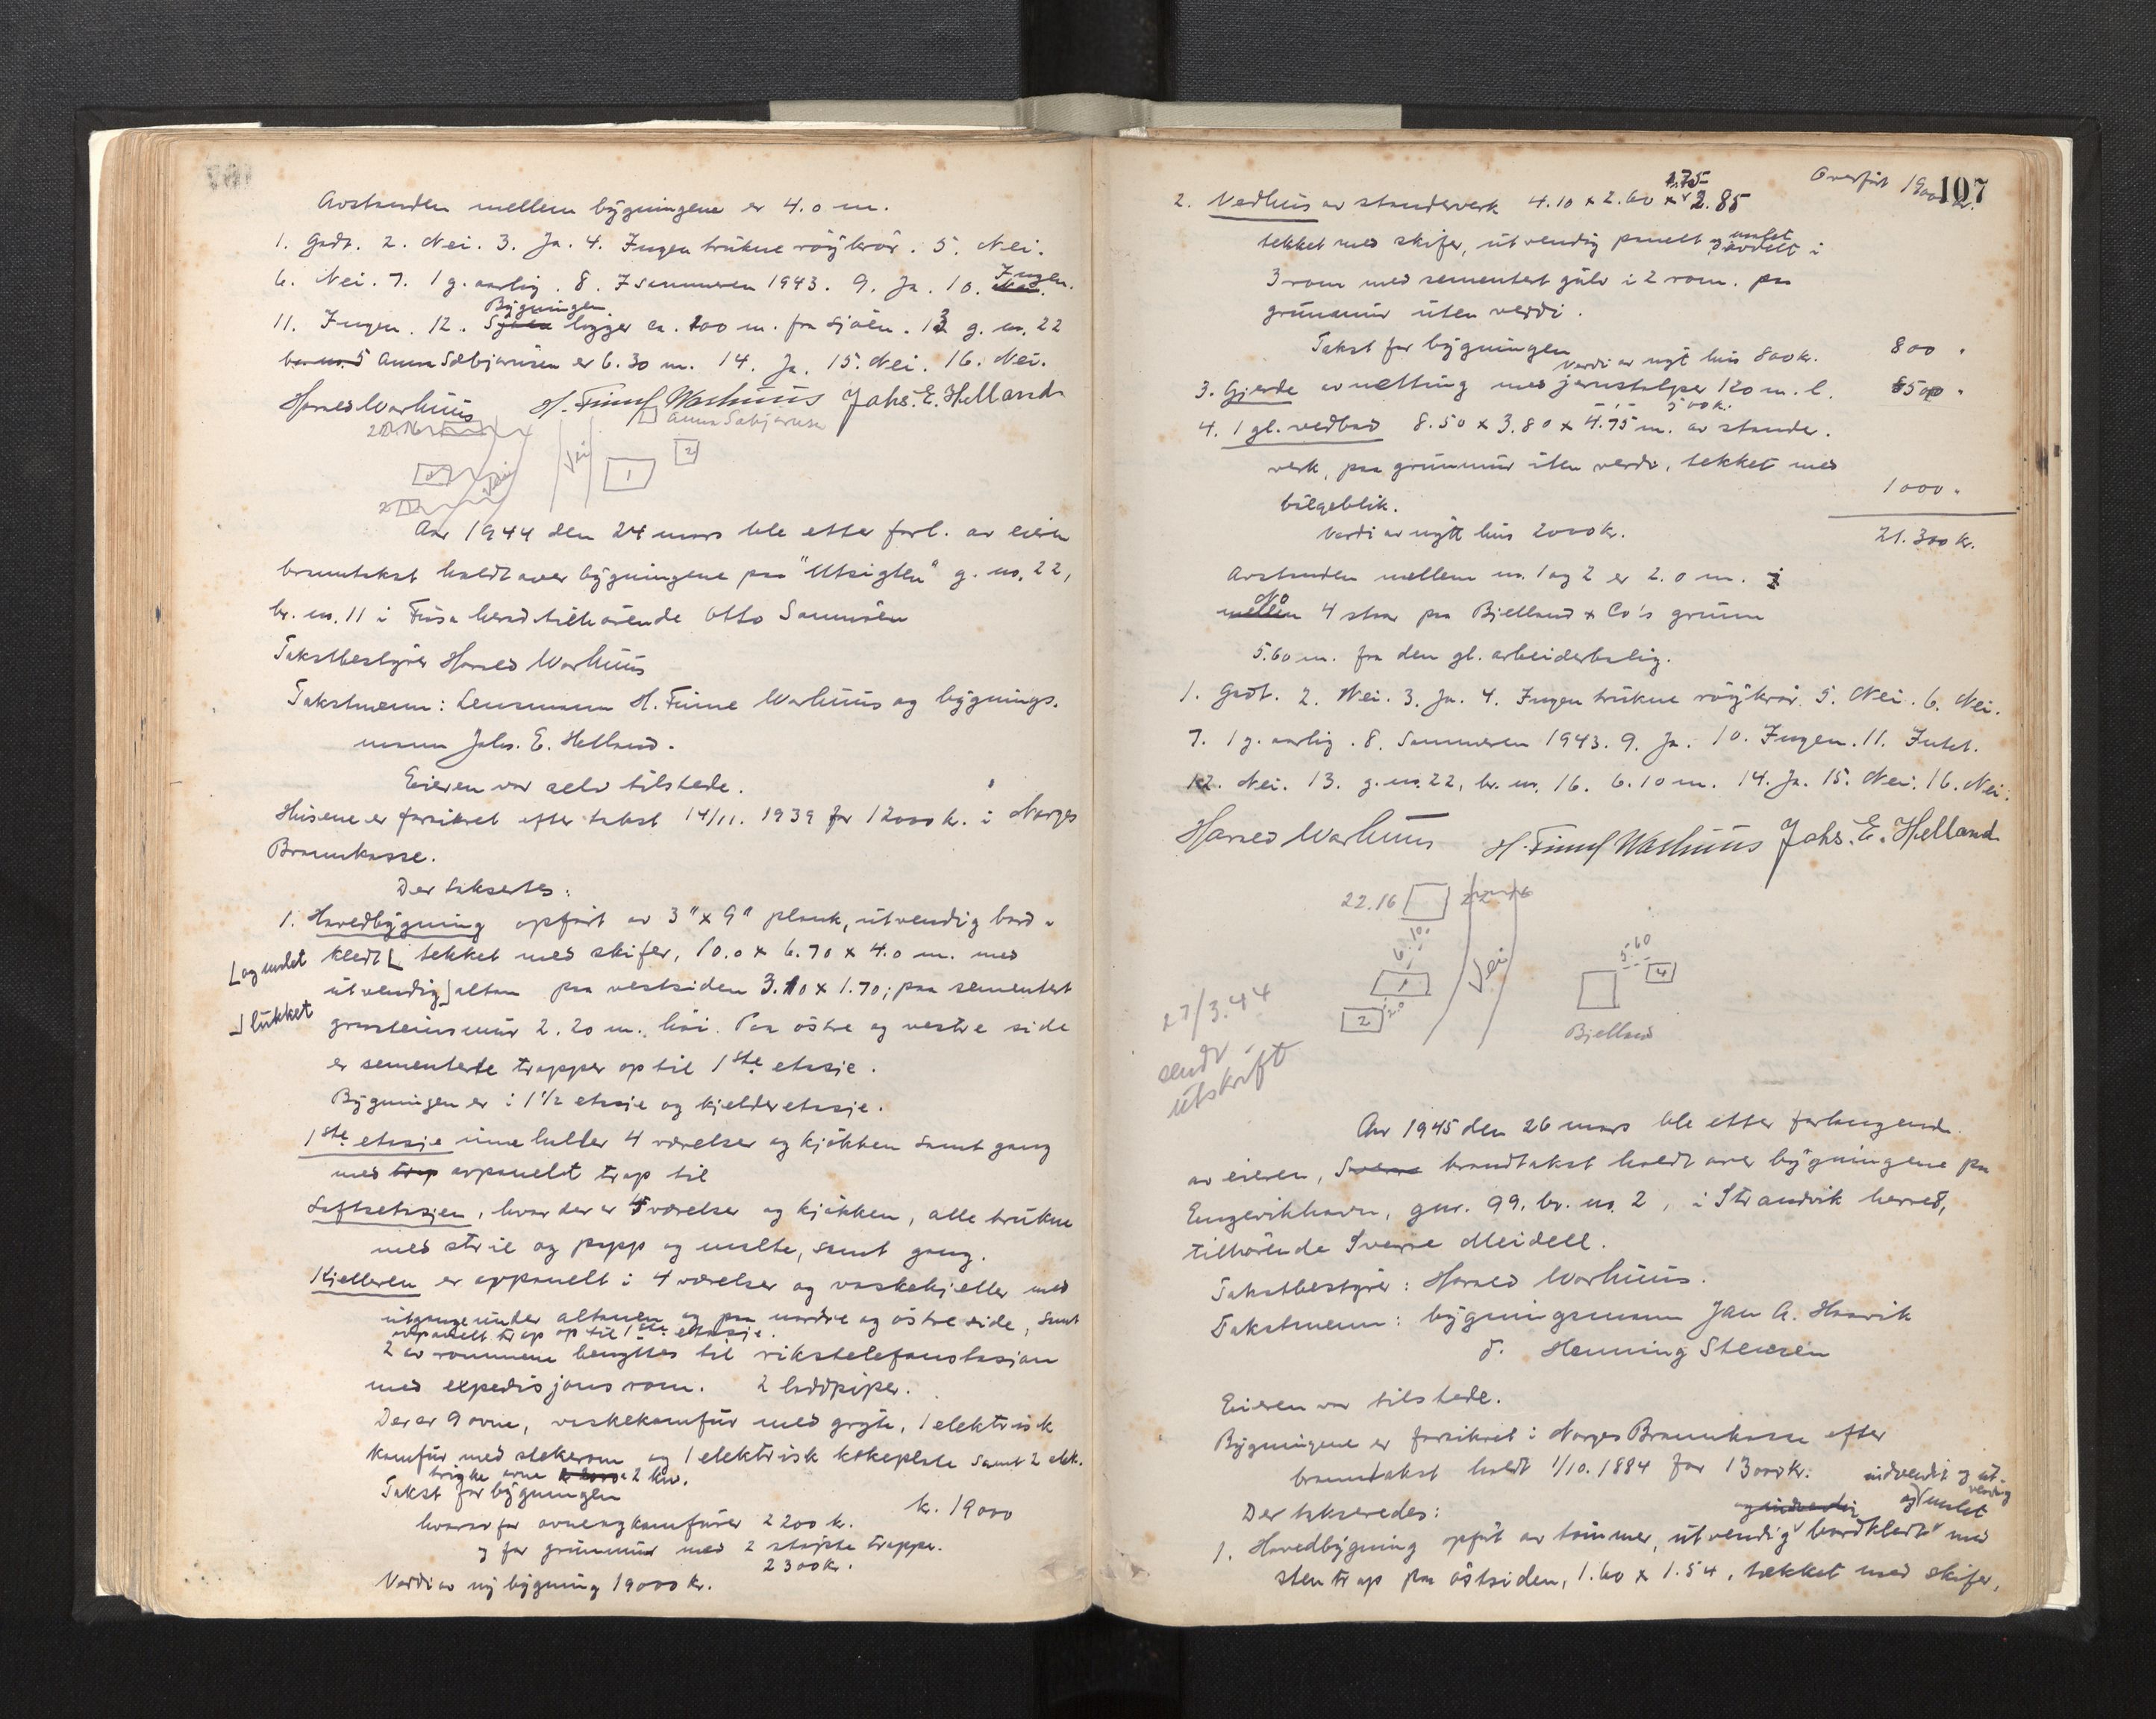 Avstanden mellem bygningene er 4.0 m.
1. Godt. 2. Nei. 3. Ja. 4. Ingen trukne röykrör. 5. Nei.
6. Nei. 7. 1 g. aarlig. 8. I sommeren 1943. 9. Ja. 10. Ingen.
Bygningen
11. Ingen. 12. ligger ca. 200 m. fra sjöen. 13 g. no. 22
br. no. 5 Anna Sæbjørnsen er 6.30 m. 14. Ja. 15. Nei. 16. Nei.
Harald Warhuus H. Finne Warhuus Johs. E. Helland
Anna Sæbjørnsen
Vei 1 2
Aar 1944 den 24 mars ble etter forl. av eieren
branntakst holdt over bygningene paa "Utsigten" g. no. 22,
br. no. 11 i Fusa herad tilhörende Otto Samnöen
Takstbestyrer Harald Warhuus
Takstmenn: Lensmann H. Finne Warhuus og bygnings-
mann Johs. E. Helland.
Eieren var selv tilstede.
Husene er forsikret efter takst 14/11. 1939 for 12000 kr. i Norges
Brannkasse.
Der takseres:
1. Hovedbygning opfört av 3" x 9" plank, utvendig bord-
[og malet kledt[ tekket med skifer, 10.0 x 6.70 x 4.0 m. med
utvendig] altan paa vestsiden 3.10 x 1.70; paa sementert
] lukket graasteinsmur 2.20 m. höi. Paa östre og vestre side
er sementerte trapper op til 1ste etasje.
Bygningen er i 1 1/2 etasje og kjelderetasje.
1ste etasje inneholder 4 værelser og kjökken samt gang
med trap avpanelt trap til
Loftsetasjen, hvor der er 4 værelser og kjökken, alle trukne
med strie og papp og malte, samt gang.
Kjelleren er avpanelt i 4 værelser og vaskekjeller med
utgange under altanen og paa nordre og östre side, samt
avpanelt trap op til 1ste etasje.
2 av rommene benyttes til rikstelefonstasjon
med expedisjonsrom. 2 loddpiper.
Der er 9 ovne, vaskekomfur med gryte, 1 elektrisk
komfur med stekerom og 1 elektrisk kokeplate samt 2 elek-
triske ovne 2 kw.
Takst for bygningen kr. 19000
hvorav for ovne og komfurer 2200 k.
og for grunnmur med 2 støpte trapper.
2300 kr.
Verdi av ny bygning 19000 kr.
107
Overfört 19000 kr.
1.75
2. Vedhus av standerverk 4.10 x 2.60 x 2.85
tekket med skifer, utvendig panelt og malet avdelt i
3 rom med sementert gulv i 2 rom. paa
grunnmur uten verdi.
Takst for bygningen 800 "
Verdi av nyt hus 800 kr.
3. Gjerde av netting med jernstolper 120 m. l. 500 "
500 k.
4. 1 gl. vedbod 8.50 x 3.80 x 4.75 m. av stander-
verk, paa grunnmur uten verdi, tekket med
bölgeblik. 1000 "
Verdi av nytt hus 2000 kr. 21.300 kr.
Avstanden mellem no. 1 og 2 er 2.0 m.
No
mellem 4 staar paa Bjelland & Co's grunn
5.60 m. fra den gl. arbeiderbolig.
1. Godt. 2. Nei. 3. Ja. 4. Ingen trukne röykrör. 5. Nei. 6. Nei.
7. 1 g. aarlig. 8. Sommeren 1943. 9. Ja. 10. Ingen. 11. Intet.
12. Nei. 13. g. no. 22, br. no. 16. 6.10 m. 14. Ja. 15. Nei. 16. Nei.
Harald Warhuus H. Finne Warhuus Johs. E. Helland
22.16 22.16
6.10 Vei 5.60
1 4
2 2.0
Bjelland
27/3.44
sendt
utskrift
Aar 1945 den 26 mars ble etter forlangende
av eieren, Sverre brandtakst holdt over bygningene paa
Engevikhavn, gnr. 99, br. no. 2, i Strandvik herred,
tilhörende Sverre Meidell.
Takstbestyrer: Harald Warhuus.
Takstmenn: bygningsmann Jan A. Haavik
d. Henning Stensen
Eieren var tilstede.
Bygningene er forsikret i Norges Brannkasse efter
branntakst holdt 1/10. 1884 for 13000 kr.
Der takseredes:
indvendig og ut-
vendig
og indvendig og malet
1. Hovedbygning opfört av tömmer, utvendig bordkledt med
stentrap paa östsiden, 1.60 x 1.54, tækket med skifer,